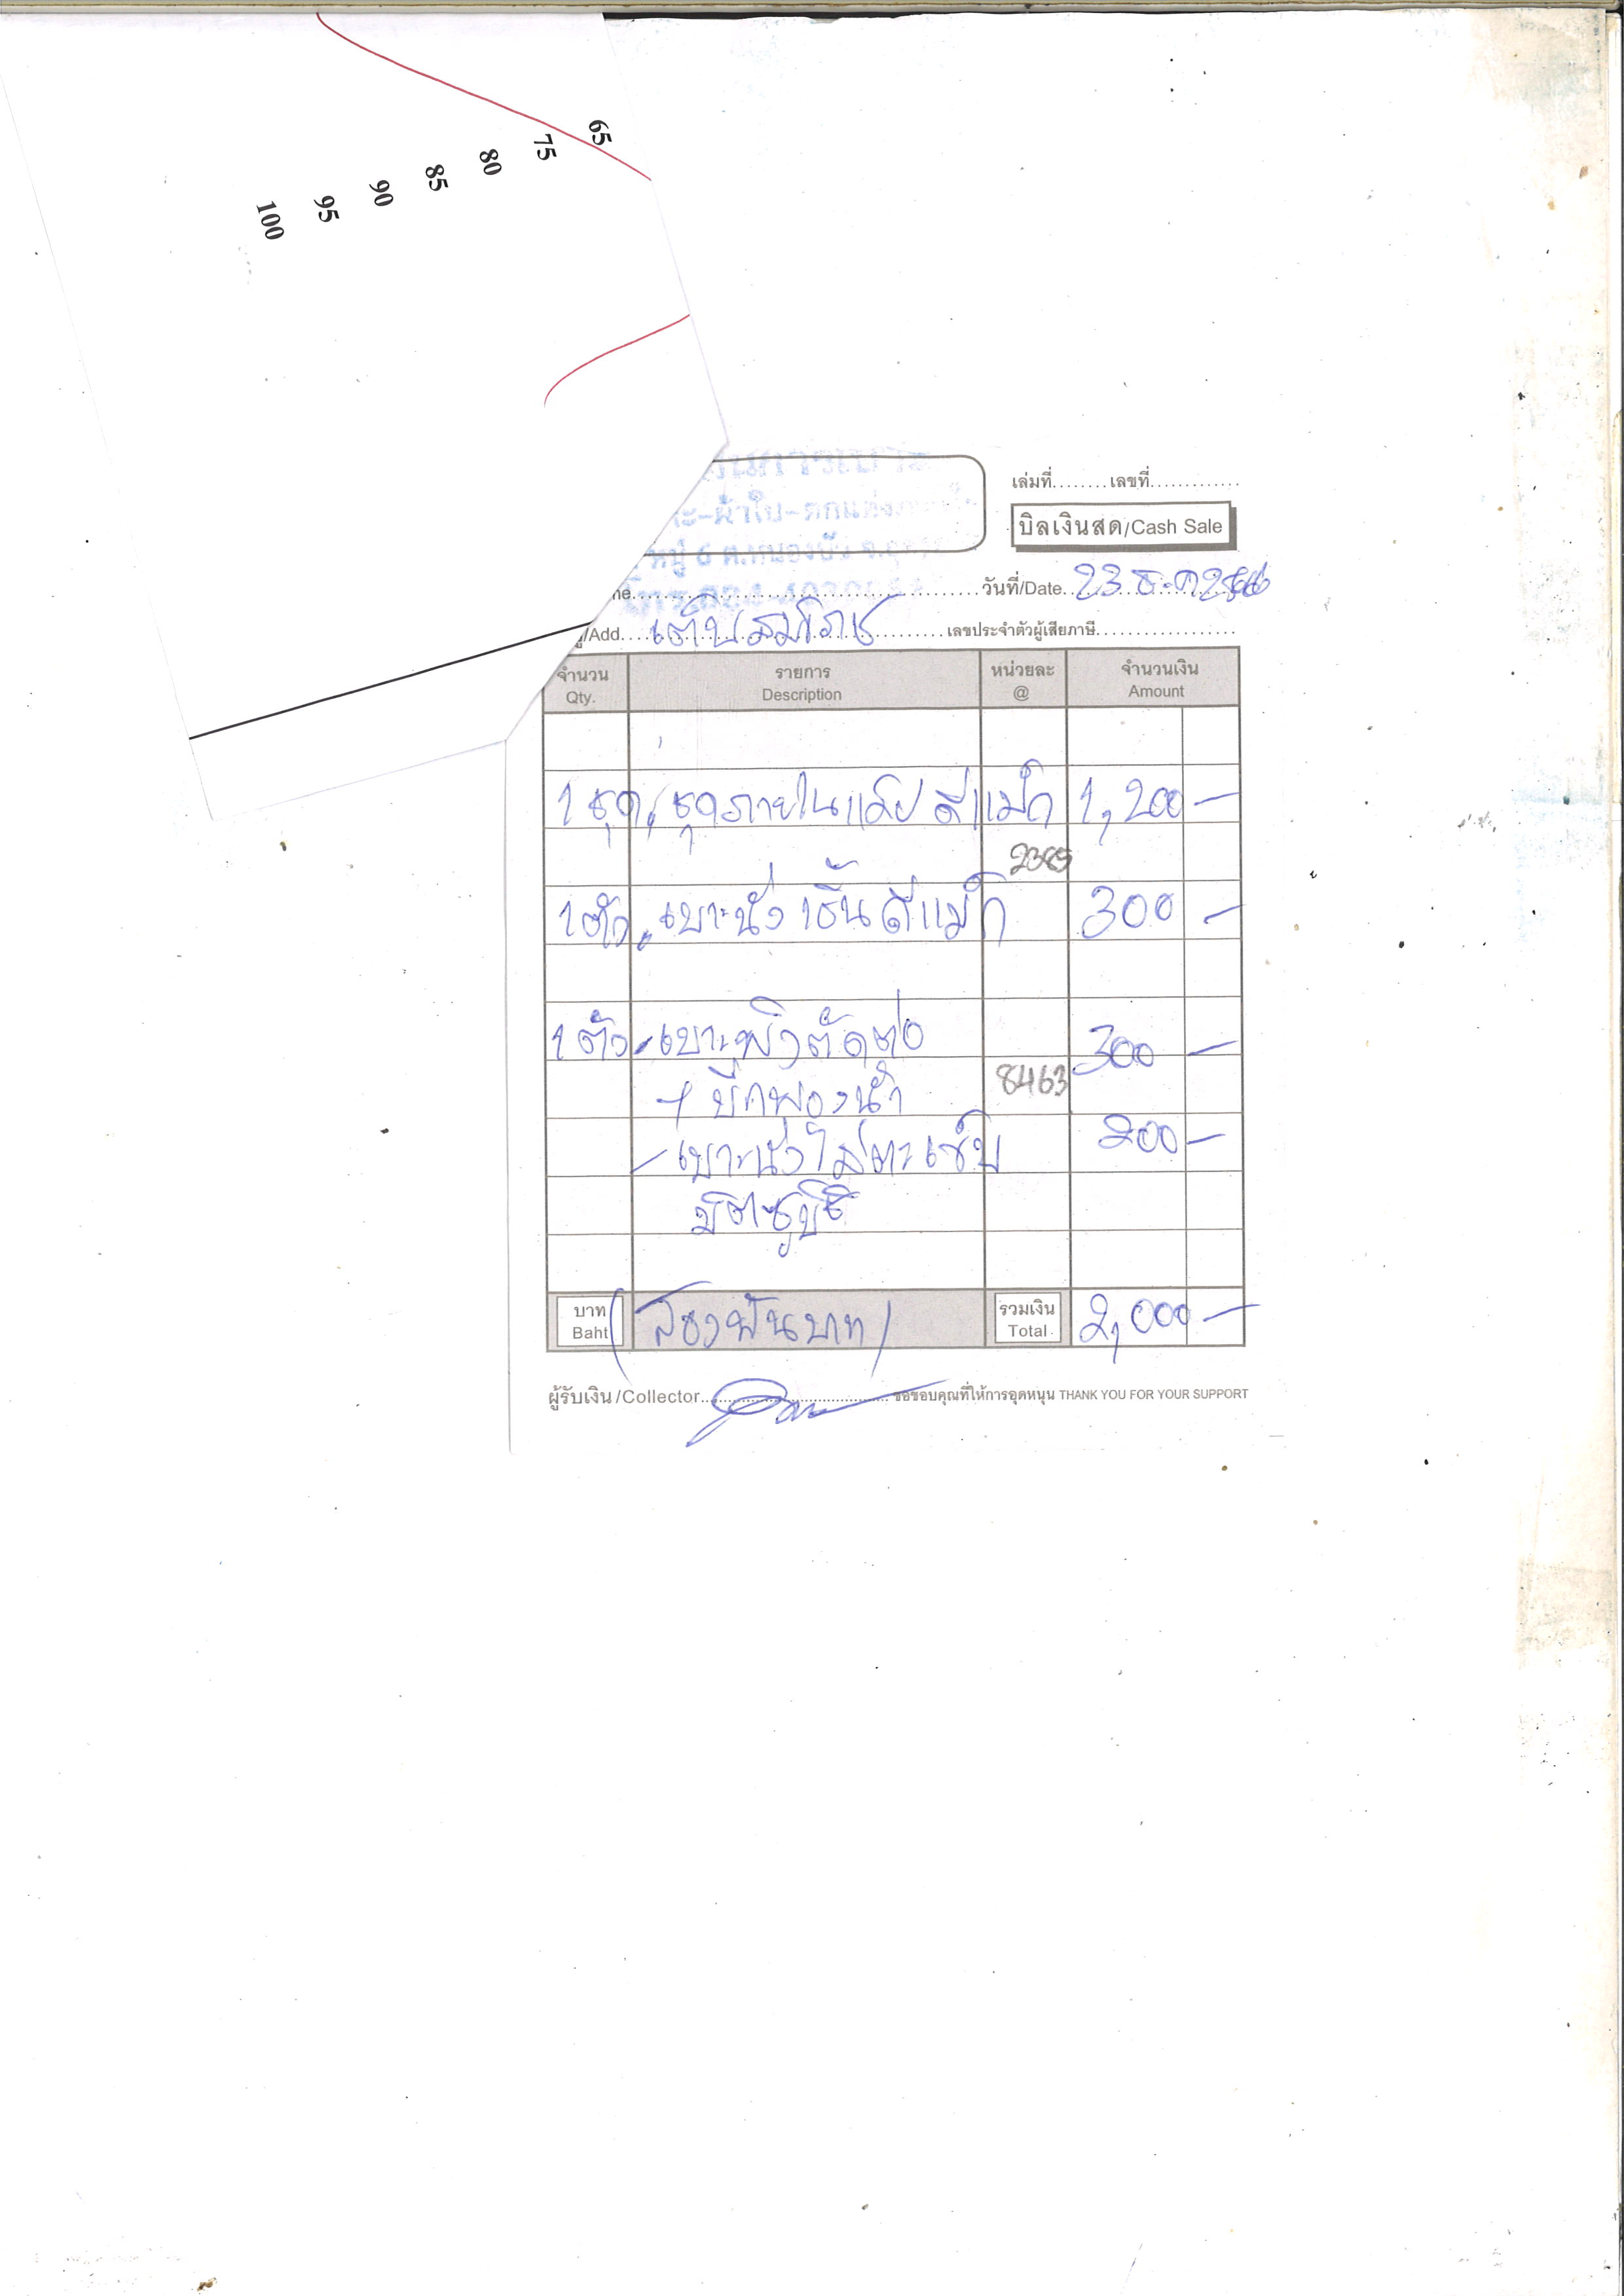 65
75
80
85
90
95
100
เล่มที่........เลขที่.............
บิลเงินสด/Cash Sale
-ผ้าใบ-ตกแต่ง
หมู่ 6 ต.หนองบัว
วันที่/Date. 23 ธ.ค
/Add. เลขประจำตัวผู้เสียภาษี
จำนวน รายการ หน่วยละ จำนวนเงิน
Qty. Description @ Amount
1 ชุด ชุดภายในแค็ป ดีแม็ก 1,200 -
1 ตัว เบาะนั่ง ดีแม็ก 300 -
1 ตัว - เบาะพิง ตัดต่อ 300 -
+ บีกฟองน้ำ 8463
- เบาะนั่งใส่ตะเข็บ 200 -
มิตซูบิชิ
บาท (สองพันบาท) รวมเงิน 2,000 -
Baht Total
ผู้รับเงิน/Collector ขอขอบคุณที่ให้การอุดหนุน THANK YOU FOR YOUR SUPPORT